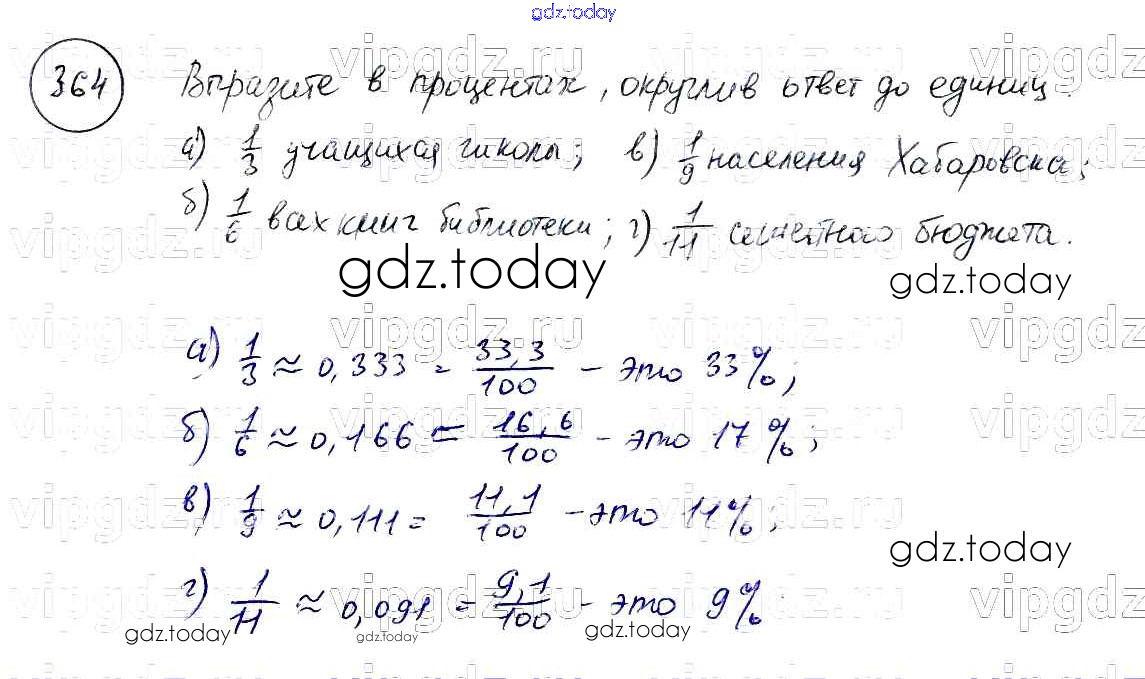 gdz.today
364 Выразите в процентах, округлив ответ до единиц.
а) 1/3 учащихся школы; в) 1/9 населения Хабаровска;
б) 1/6 всех книг библиотеки; г) 1/11 семейного бюджета.
gdz.today gdz.today
а) 1/3 ≈ 0,333 = 33,3/100 - это 33%;
б) 1/6 ≈ 0,166 = 16,6/100 - это 17%;
в) 1/9 ≈ 0,111 = 11,1/100 - это 11%;
gdz.today
г) 1/11 ≈ 0,091 = 9,1/100 - это 9%
gdz.today gdz.today gdz.today
vipgdz.ru